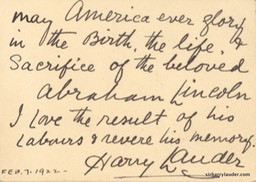 may America ever glory
in the Birth, the life, &
Sacrifice of the beloved
Abraham Lincoln
I love the result of his
Labours & revere his memory.
Harry Lauder
FEB. 7. 1922-
sirharrylauder.com